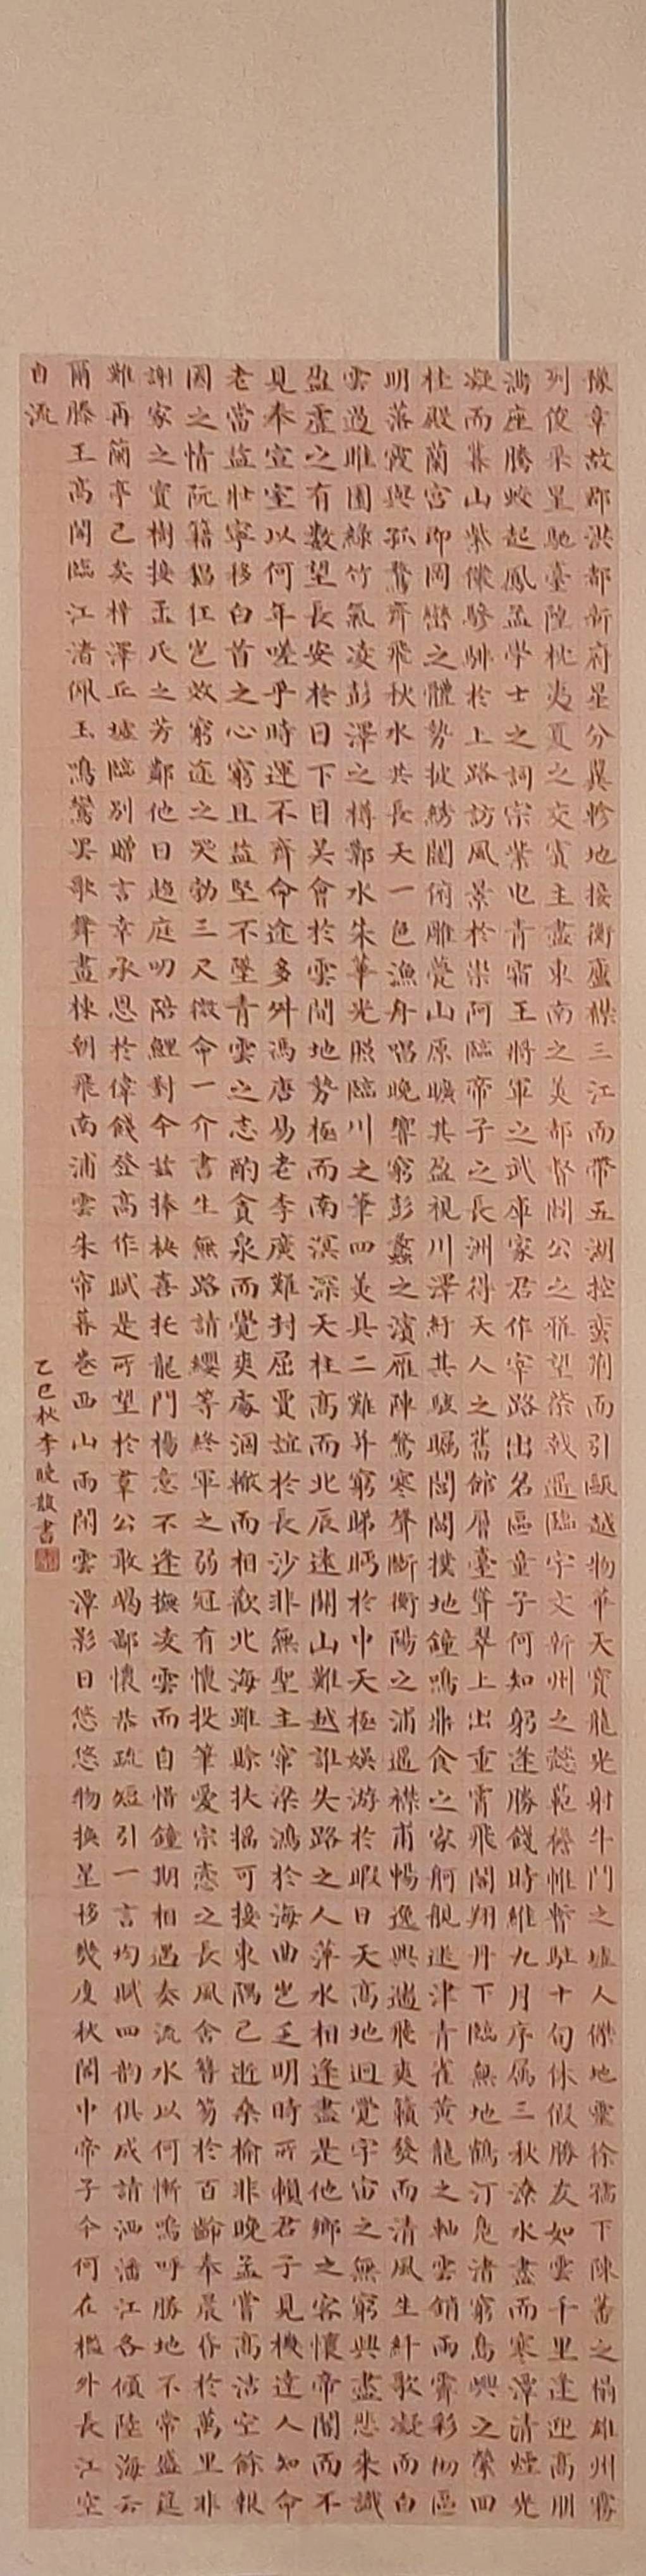 豫章故郡洪都新府星分翼軫地接衡廬襟三江而帶五湖控蠻荊而引甌越物華天寶龍光射牛鬥之墟人傑地靈徐孺下陳蕃之榻雄州霧
列俊采星馳臺隍枕夷夏之交賓主盡東南之美都督閻公之雅望棨戟遙臨宇文新州之懿範襜帷暫駐十旬休假勝友如雲千里逢迎高朋
滿座騰蛟起鳳孟學士之詞宗紫電青霜王將軍之武庫家君作宰路出名區童子何知躬逢勝餞時維九月序屬三秋潦水盡而寒潭清煙光
凝而暮山紫儼驂騑於上路訪風景於崇阿臨帝子之長洲得天人之舊館層臺聳翠上出重霄飛閣翔丹下臨無地鶴汀鳧渚窮島嶼之縈回
桂殿蘭宮即岡巒之體勢披繡闥俯雕甍山原曠其盈視川澤紆其駭矚閭閻撲地鐘鳴鼎食之家舸艦迷津青雀黃龍之軸雲銷雨霽彩徹區
明落霞與孤鶩齊飛秋水共長天一色漁舟唱晚響窮彭蠡之濱雁陣驚寒聲斷衡陽之浦遙襟甫暢逸興遄飛爽籟發而清風生纖歌凝而白
雲遏睢園綠竹氣凌彭澤之樽鄴水朱華光照臨川之筆四美具二難并窮睇眄於中天極娛游於暇日天高地迥覺宇宙之無窮興盡悲來識
盈虛之有數望長安於日下目吳會於雲間地勢極而南溟深天柱高而北辰遠關山難越誰失路之人萍水相逢盡是他鄉之客懷帝閽而不
見奉宣室以何年嗟乎時運不齊命途多舛馮唐易老李廣難封屈賈誼於長沙非無聖主竄梁鴻於海曲豈乏明時所賴君子見機達人知命
老當益壯寧移白首之心窮且益堅不墜青雲之志酌貪泉而覺爽處涸轍而相歡北海雖賒扶搖可接東隅已逝桑榆非晚孟嘗高潔空餘報
國之情阮籍猖狂豈效窮途之哭勃三尺微命一介書生無路請纓等終軍之弱冠有懷投筆愛宗愨之長風舍簪笏於百齡奉晨昏於萬里非
謝家之寶樹接孟氏之芳鄰他日趨庭叨陪鯉對今茲捧袂喜托龍門楊意不逢撫凌雲而自惜鐘期相遇奏流水以何慚嗚呼勝地不常盛筵
難再蘭亭已矣梓澤丘墟臨別贈言幸承恩於偉餞登高作賦是所望於羣公敢竭鄙懷恭疏短引一言均賦四韵俱成請洒潘江各傾陸海云
爾滕王高閣臨江渚佩玉鳴鸞罷歌舞畫棟朝飛南浦雲朱帘暮卷西山雨閒雲潭影日悠悠物換星移幾度秋閣中帝子今何在檻外長江空
自流
乙巳秋李曉薇書